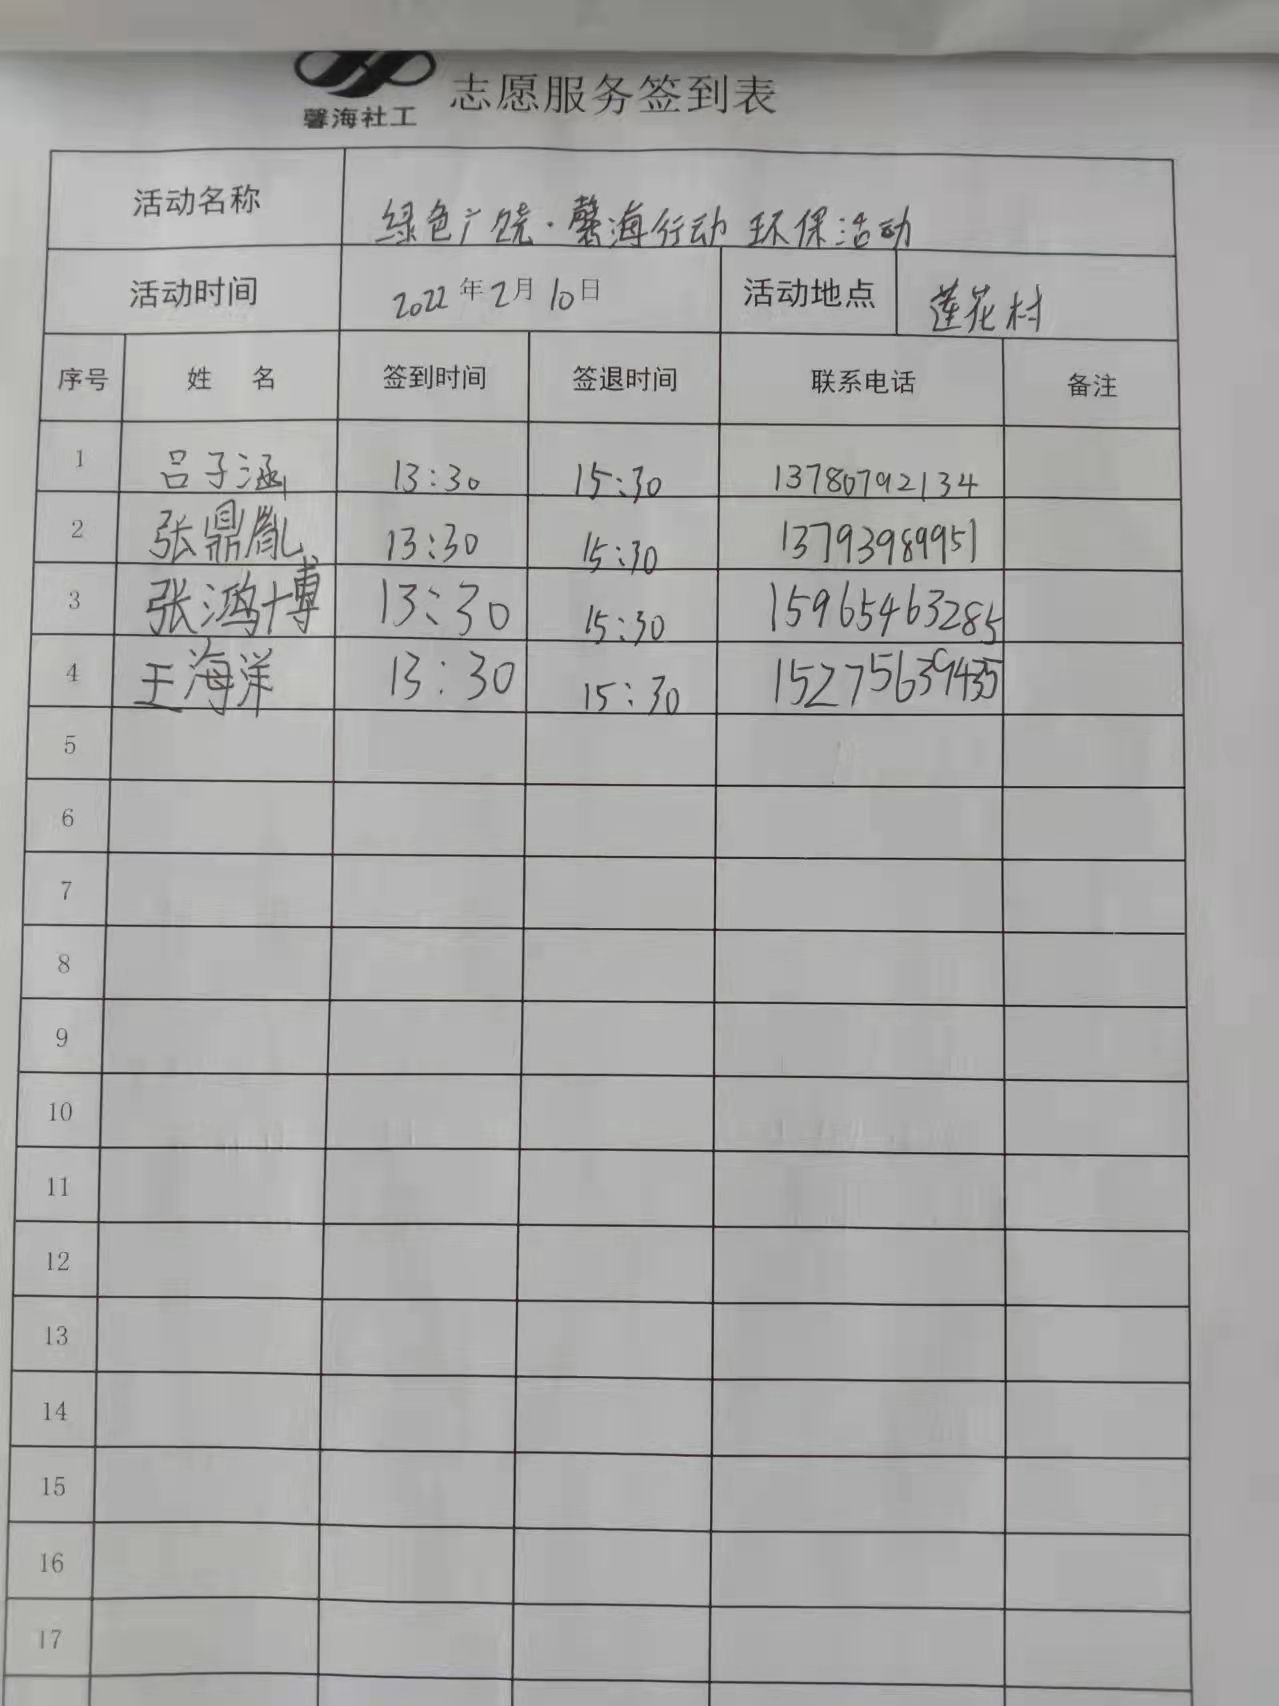 馨海社工 志愿服务签到表
活动名称 绿色广饶·馨海行动 环保活动
活动时间 2022年2月10日 活动地点 莲花村
序号 姓 名 签到时间 签退时间 联系电话 备注
1 吕子涵 13:30 15:30 13780792134
2 张鼎胤 13:30 15:30 13793989951
3 张鸿博 13:30 15:30 15965463285
4 王海洋 13:30 15:30 15275639435
5
6
7
8
9
10
11
12
13
14
15
16
17